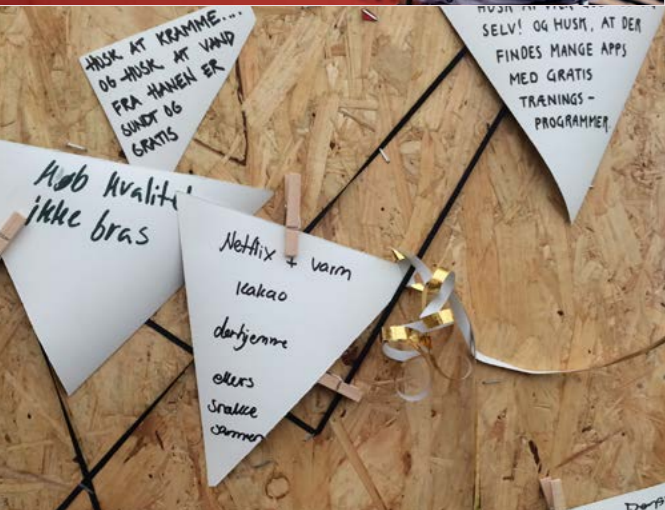 HUSK AT KRAMME....
OG HUSK AT VAND
FRA HANEN ER
SUNDT OG
GRATIS
SELV! OG HUSK, AT DER
FINDES MANGE APPS
MED GRATIS
TRÆNINGS-
PROGRAMMER.
Køb kvalitet
ikke bras
Netflix + varm
kakao
derhjemme
ellers
snakke
sammen